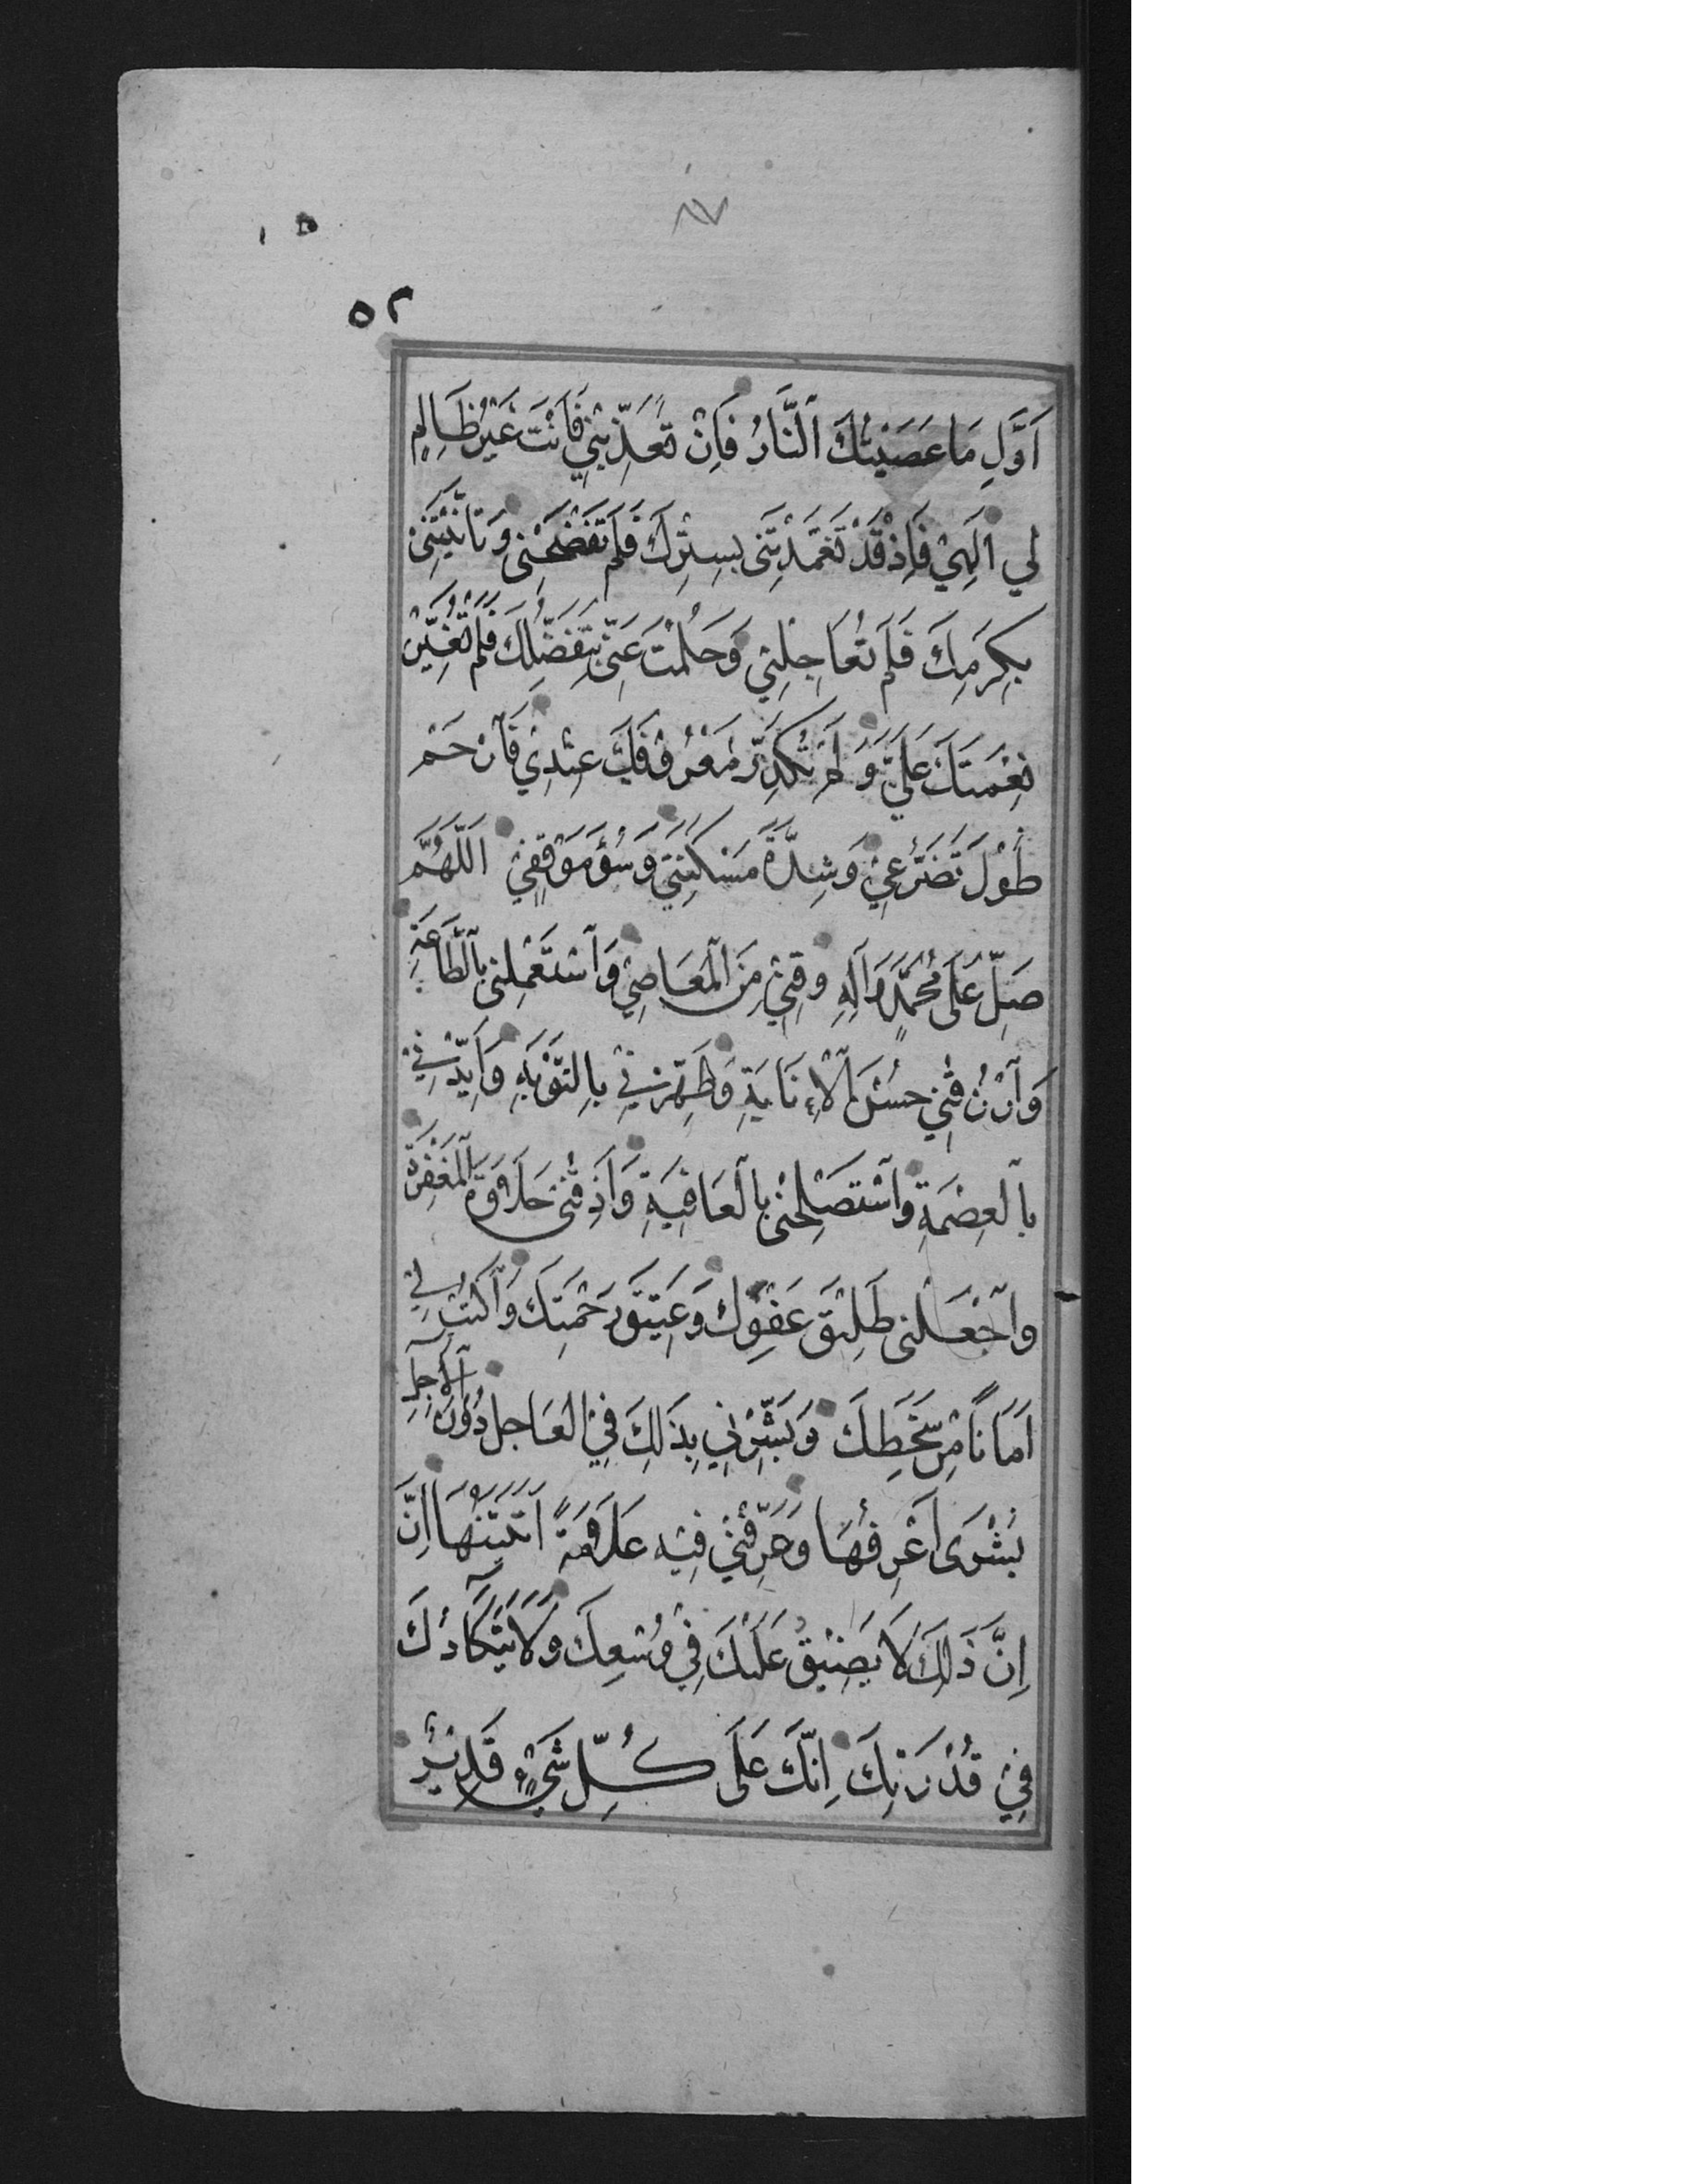 ٨٧
٥٢
اَوَّلِ مَا عَصَيْتُكَ اَلنَّارُ فَاِنْ تُعَذِّبْنِي فَاَنْتَ غَيْرُ ظَالِمٍ
لِي اِلَهِيْ فَاِذْ قَدْ تَغَمَّدْتَنِى بِسِتْرِكَ فَلَمْ تَفْضَحْنِى وَتَاَنَّيْتَنِى
بِكَرَمِكَ فَلَمْ تُعَاجِلْنِي وَحَلُمْتَ عَنِّى بِتَفَضُّلِكَ فَلَمْ تُغَيِّرْ
نِعْمَتَكَ عَلَيَّ وَلَمْ تُكَدِّرْ مَعْرُوْفَكَ عِنْدِيْ فَارْحَمْ
طُوْلَ تَضَرُّعِيْ وَشِدَّةَ مَسْكَنَتِيْ وَسُوْءَ مَوْقِفِيْ اَللّٰهُمَّ
صَلِّ عَلَى مُحَمَّدٍ وَآلِهِ وَقِنِيْ مِنَ الْمَعَاصِيْ وَاسْتَعْمِلْنِي بِالطَّاعَةِ
وَارْزُقْنِي حُسْنَ الْاِنَابَةِ وَطَهِّرْنِيْ بِالتَّوْبَةِ وَاَيِّدْنِيْ
بِالْعِصْمَةِ وَاسْتَصْلِحْنِى بِالْعَافِيَةِ وَاَذِقْنِى حَلَاوَةَ الْمَغْفِرَةِ
وَاجْعَلْنِى طَلِيْقَ عَفْوِكَ وَعَتِيْقَ رَحْمَتِكَ وَاكْتُبْ لِيْ
اَمَانًا مِنْ سَخَطِكَ وَبَشِّرْنِي بِذَلِكَ فِيْ الْعَاجِلِ دُوْنَ الْآجِلِ
بُشْرَى اَعْرِفُهَا وَعَرِّفْنِيْ فِيْهِ عَلَامَةً اَتَبَيَّنُهَا اِنَّ
اِنَّ ذَلِكَ لَا يَضِيْقُ عَلَيْكَ فِيْ وُسْعِكَ وَلَا يَتَكَاَّدُكَ
فِيْ قُدْرَتِكَ اِنَّكَ عَلَى كُلِّ شَيْءٍ قَدِيْرٌ